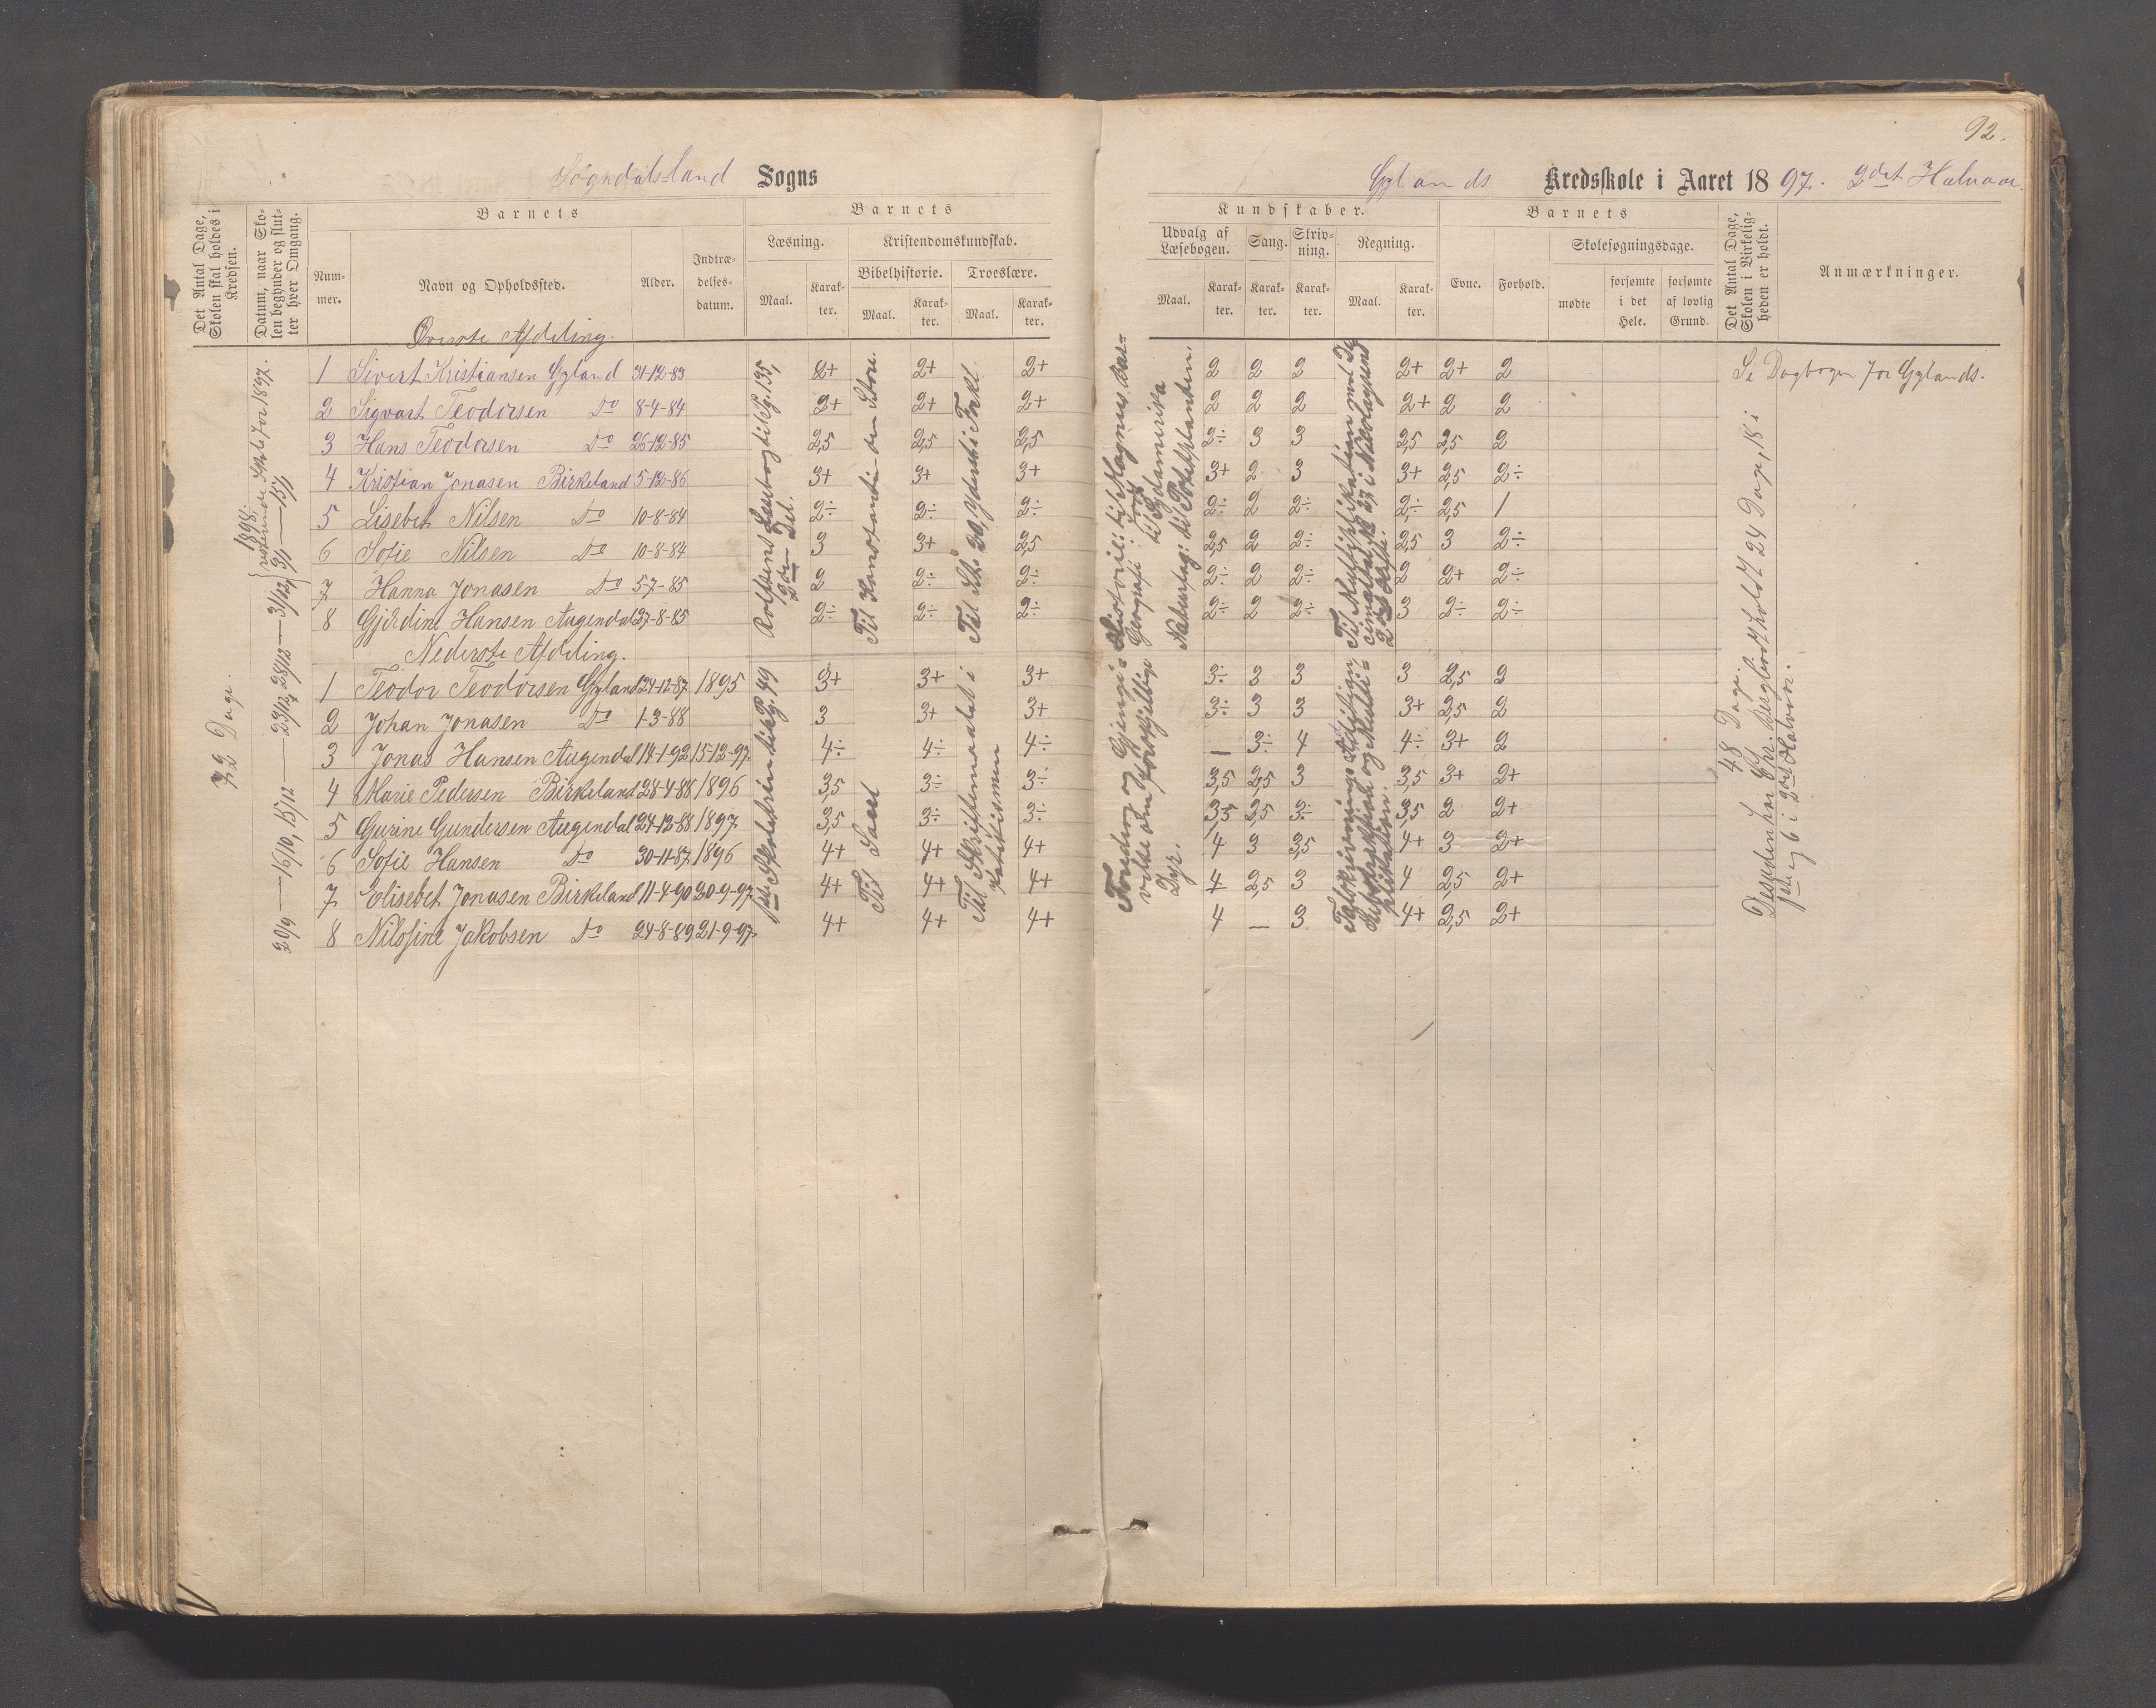 92.
Sogndalsland Sogns
Gylands Kredsskole i Aaret 1897. 2det Halvaar.
Det Antal Dage, Skolen skal holdes i Kredsen.
Datum, naar Skolen begynder og slutter hver Omgang.
Barnets
Nummer.
Navn og Opholdssted.
Alder.
Indtrædelsesdatum.
Barnets
Læsning.
Maal.
Karakter.
Kristendomskundskab.
Bibelhistorie.
Maal.
Karakter.
Troeslære.
Maal.
Karakter.
Kundskaber.
Udvalg af Læsebogen.
Maal.
Karakter.
Sang.
Karakter.
Skrivning.
Karakter.
Regning.
Maal.
Karakter.
Barnets
Evne.
Forhold.
Skolesøgningsdage.
mødte
forsømte i det Hele.
forsømte af lovlig Grund.
Det Antal Dage, Skolen i Virkeligheden er holdt.
Anmærkninger.
Øverste Afdeling.
1 Sivert Kristiansen Gyland 31-12-83 2+ 2+ 2+ 2 2 2 2+ 2+ 2
2 Sigvart Teodorsen Do 8-4-84 2+ 2+ 2+ 2 2 2 2+ 2 2
3 Hans Teodorsen Do 26-12-85 2,5 2,5 2,5 2÷ 3 3 2,5 2,5 2
4 Kristian Jonasen Birkeland 5-12-86 3+ 3+ 3+ 3+ 2 3 3+ 2,5 2÷
5 Lisebet Nilsen Do 10-8-84 2÷ 2÷ 2÷ 2÷ 2 2÷ 2÷ 2,5 1
6 Sofie Nilsen Do 10-8-84 3 3+ 2,5 2,5 2 2÷ 2,5 3 2÷
7 Hanna Jonasen Do 5-7-85 2 2÷ 2÷ 2÷ 2 2÷ 2 2+ 2÷
8 Gjerdine Hansen Augendal 27-8-85 2÷ 2÷ 2÷ 2÷ 2 2÷ 3 2÷ 2÷
Nederste Afdeling.
1 Teodor Teodorsen Gyland 24-12-87 1895 3+ 3+ 3+ 3÷ 3 3 3 2,5 2
2 Johan Jonasen Do 1-3-88 3 3+ 3+ 3÷ 3 3 3+ 2,5 2
3 Jonas Hansen Augendal 14-1-92 15-12-97 4÷ 4÷ 4÷ — 3÷ 4 4÷ 3+ 2
4 Marie Pedersen Birkeland 28-4-88 1896 3,5 3÷ 3÷ 3,5 2,5 3 3,5 3+ 2+
5 Gurine Gundersen Augendal 24-12-88 1897 3,5 3÷ 3÷ 3,5 2,5 3÷ 3,5 2 2+
6 Sofie Hansen Do 30-11-87 1896 4+ 4+ 4+ 4 3 3,5 4+ 3 2+
7 Elisebet Jonasen Birkeland 11-4-90 20-9-97 4+ 4+ 4+ 4 2,5 3 4 2,5 2+
8 Nilsfine Jakobsen Do 24-8-89 21-9-97 4+ 4+ 4+ 4 — 3 4+ 2,5 2+
72 Dage.
20/9 — 16/10, 15/12 — 23/12, 28/12 — 31/12, 3/1 — 15/1
for 1897.
1898.
Rolfsens Læsebog til Pg. 135,
2den Del.
Til Konstantin den Store.
Til St. 20, Yderst i
1ste Skoletrin til Pg. 49
Til Saul
Til Skriftemaalet i
Katekismen
Historie: til Magnus
Geografi:
til Sydamerika
Naturfag: til Potetplanten.
Foredrag og Gjengivelse om forskjellige
Dyr.
Til Multiplikation med
2det Hefte.
Talskrivning, Addition,
Subtraktion og Multiplikation.
Se Dagbogen for Gylands.
48 Dage.
Desuden har Chr. Seglem holdt 24 Dage, 18 i
1ste og 6 i 2det Halvaar.